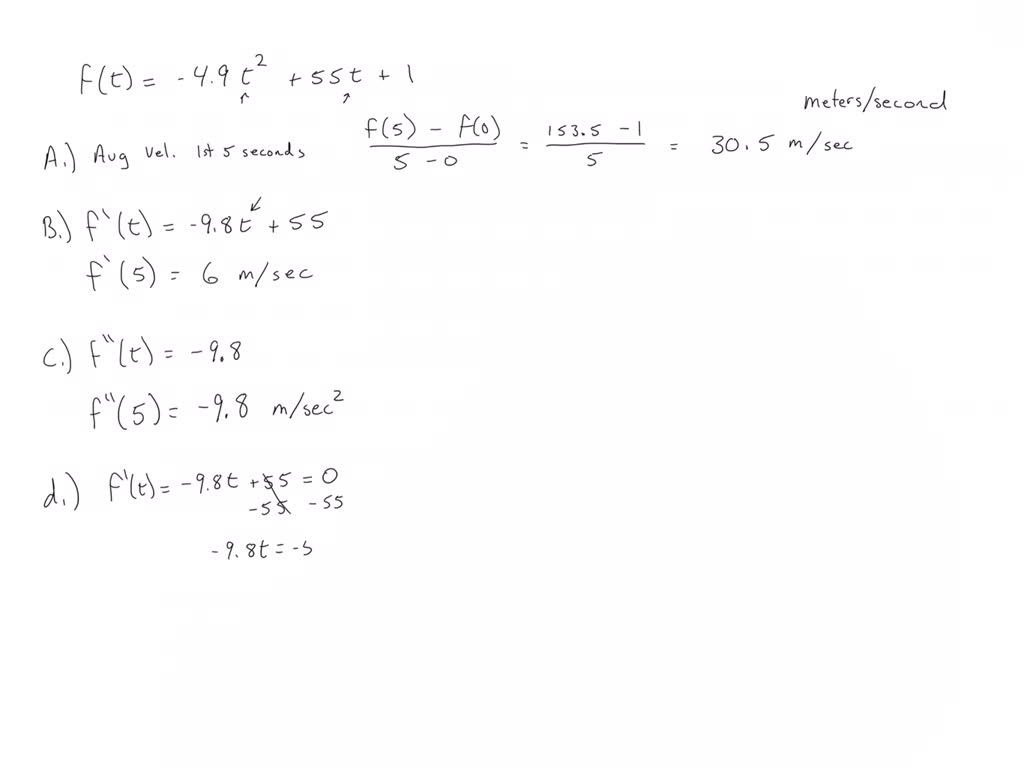 f(t) = -4.9t² + 55t + 1
meters/second
A.) Avg Vel. 1st 5 seconds (f(5) - f(0))/(5 - 0) = (153.5 - 1)/5 = 30.5 m/sec
B.) f'(t) = -9.8t + 55
f'(5) = 6 m/sec
C.) f''(t) = -9.8
f''(5) = -9.8 m/sec²
d.) f'(t) = -9.8t + 55 = 0
-55 -55
-9.8t = -5